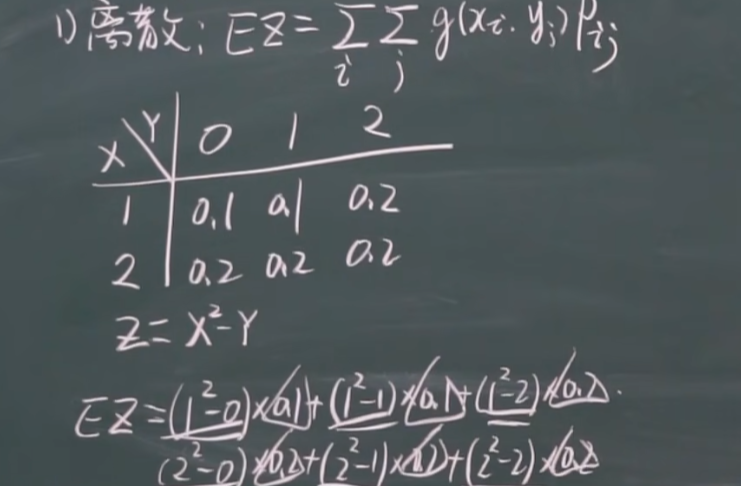 1) 离散: EZ = ∑∑ g(xi, yj) Pij
i j
X Y 0 1 2
1 0.1 0.1 0.2
2 0.2 0.2 0.2
Z = X²-Y
EZ = (1²-0)×0.1+(1²-1)×0.1+(1²-2)×0.2
(2²-0)×0.2+(2²-1)×0.2+(2²-2)×0.2